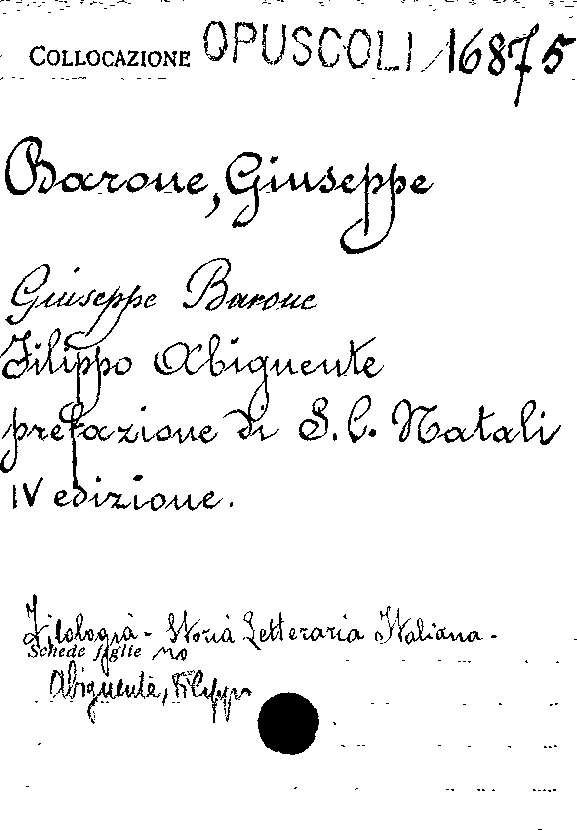 COLLOCAZIONE OPUSCOLI 16875
Barone, Giuseppe
Giuseppe Barone
Filippo Abignente
prefazione di S. C. Natali
IV edizione.
Filologia - Storia Letteraria Italiana -
Schede figlie no
Abignente, Filippo